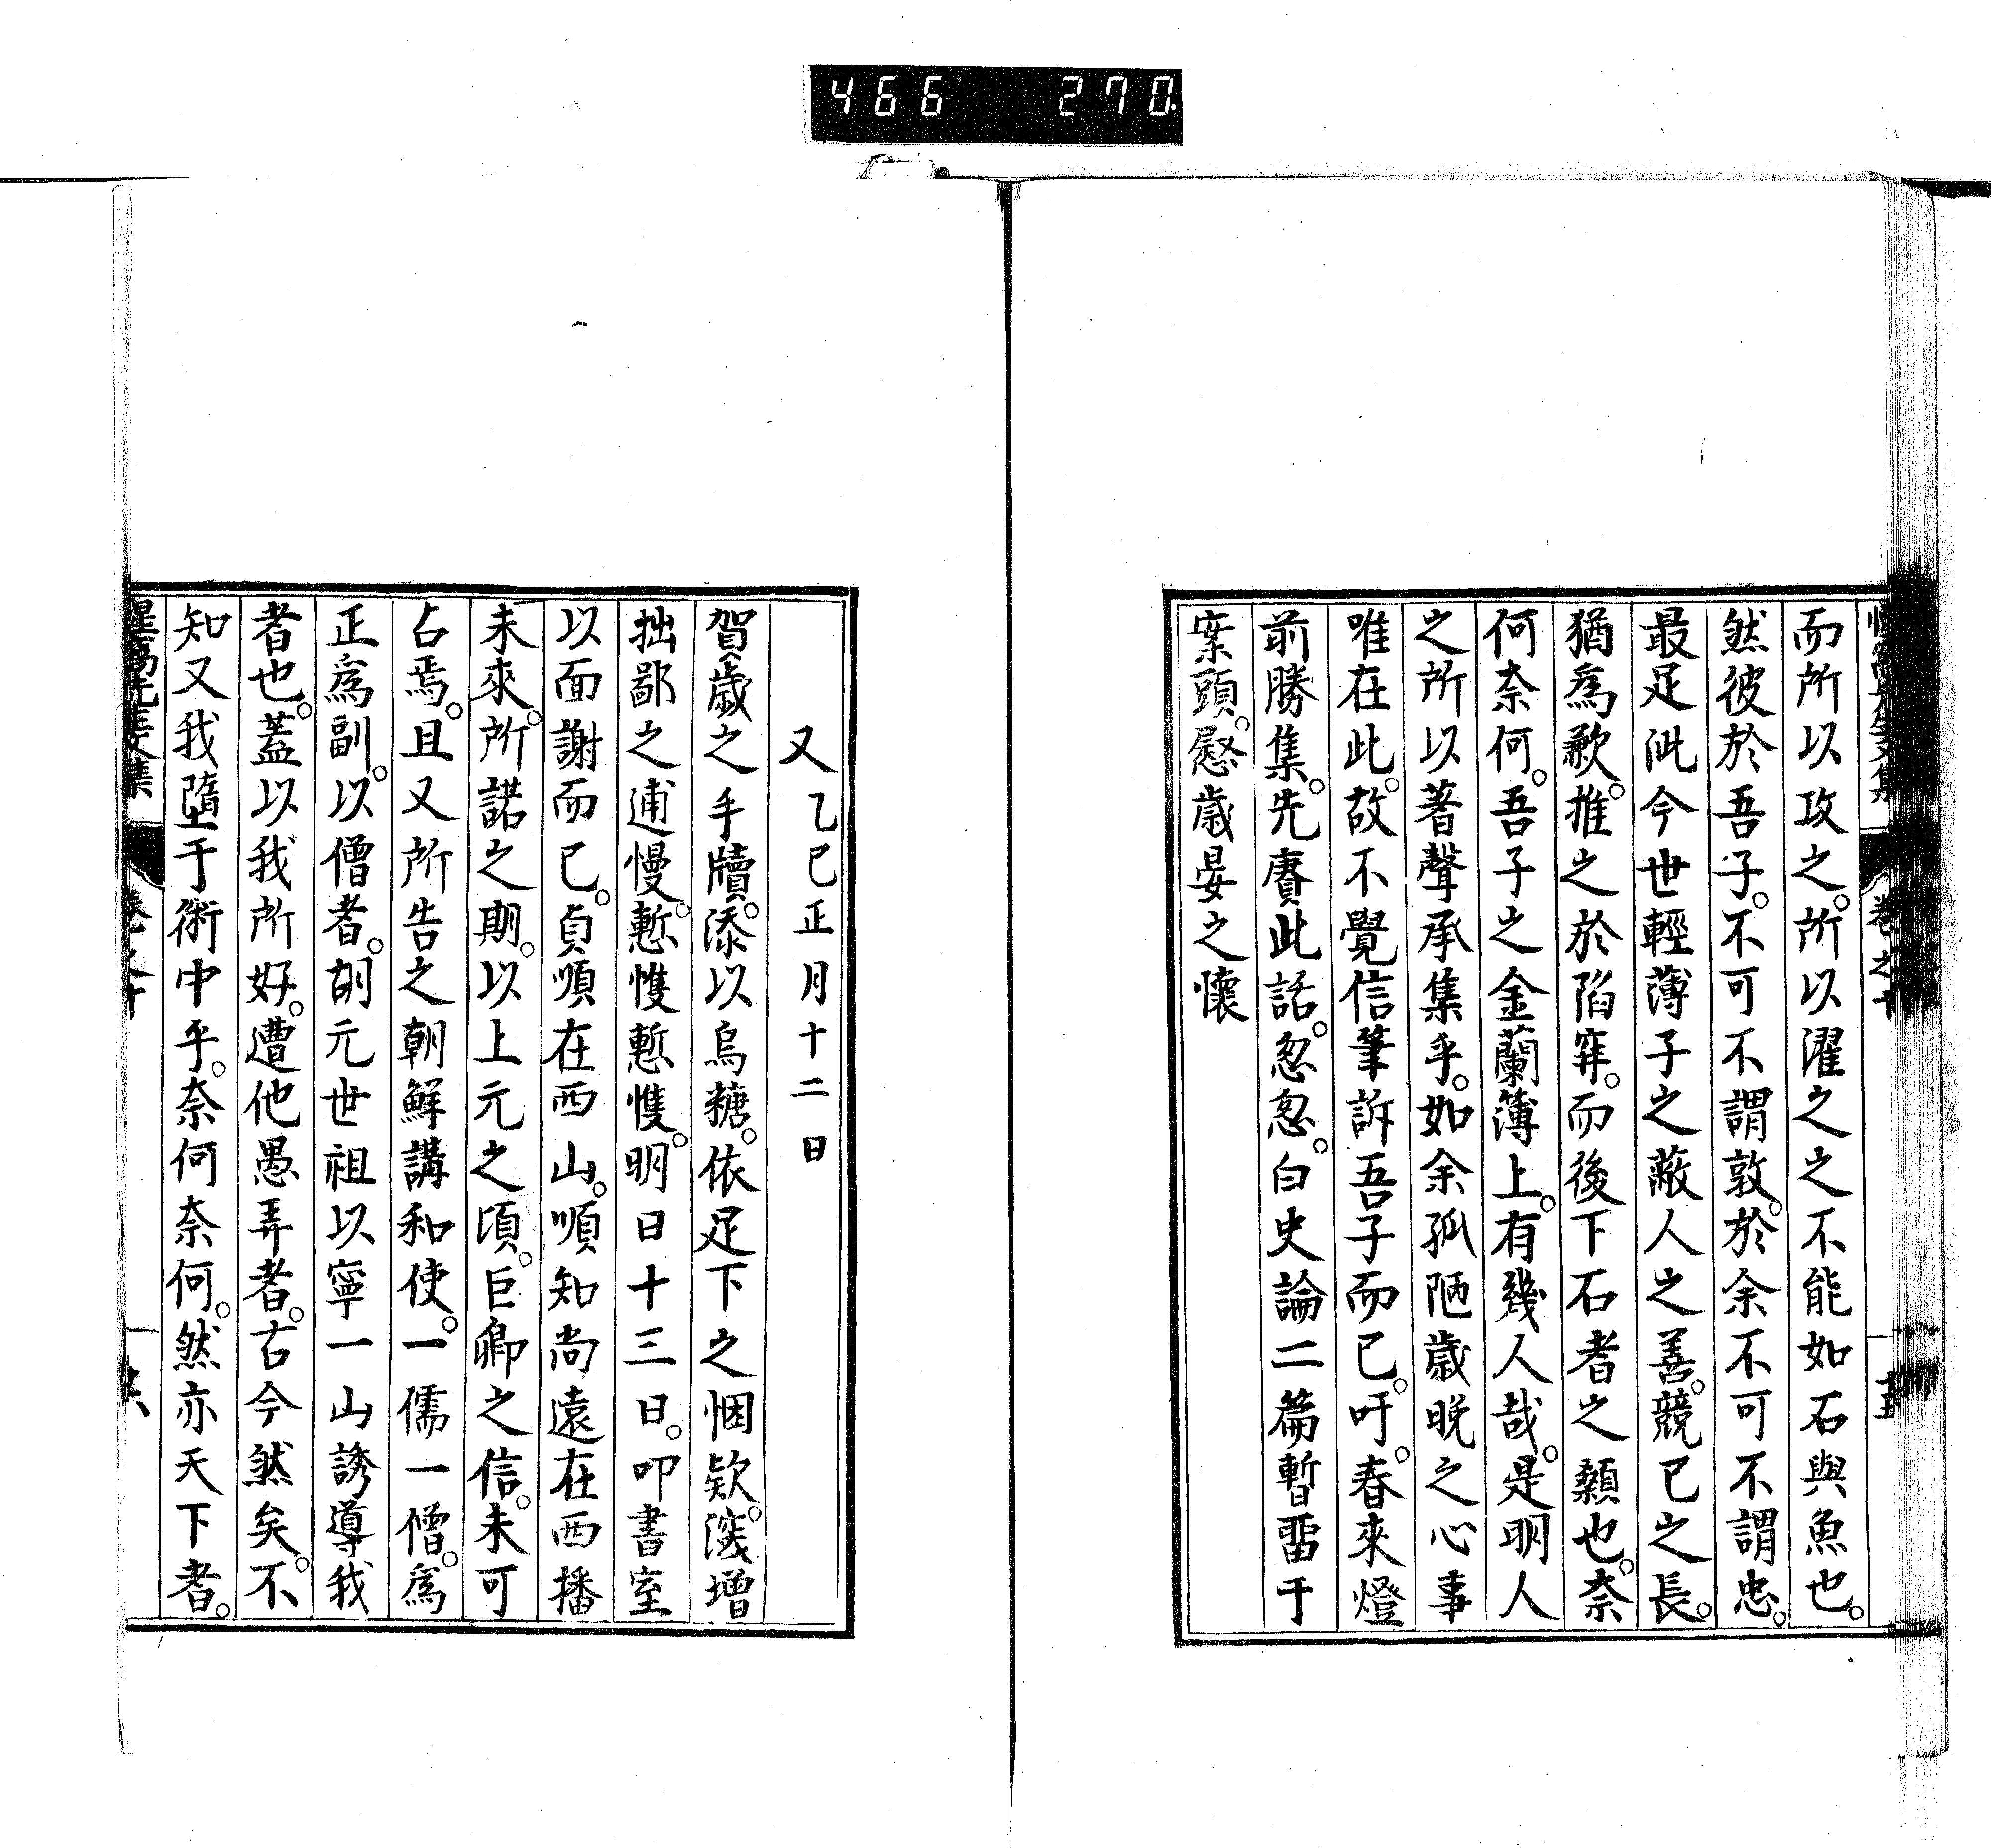 466 270
而所以攻之。所以濯之之不能如石與魚也。
然彼於吾子。不可不謂敦。於余不可不謂忠。
最足泚今世輕薄子之蔽人之善。競己之長。
猶爲歉。推之於陷穽。而後下石者之顙也。奈
何奈何。吾子之金蘭簿上。有幾人哉。是明人
之所以著聲承集乎。如余孤陋歲晚之心事
唯在此。故不覺信筆訴吾子而已。吁。春來燈
前勝集。先賡此話。怱怱。白史論二篇暫畱于
案頭。慰歳晏之懷
又乙巳正月十二日
賀歲之手牘。添以烏糖。依足下之悃欵。濅增
拙鄙之逋慢。慙愯慙愯。明日十三日。叩書室
以面謝而已。貞順在西山。順知尚遠在西播
未來。所諾之期。以上元之頃。巨卿之信。未可
占焉。且又所告之朝鮮講和使。一儒一僧。爲
正爲副。以僧者。胡元世祖以寧一山誘導我
者也。蓋以我所好。遭他愚弄者。古今然矣。不
知又我墮于術中乎。奈何奈何。然亦天下者。